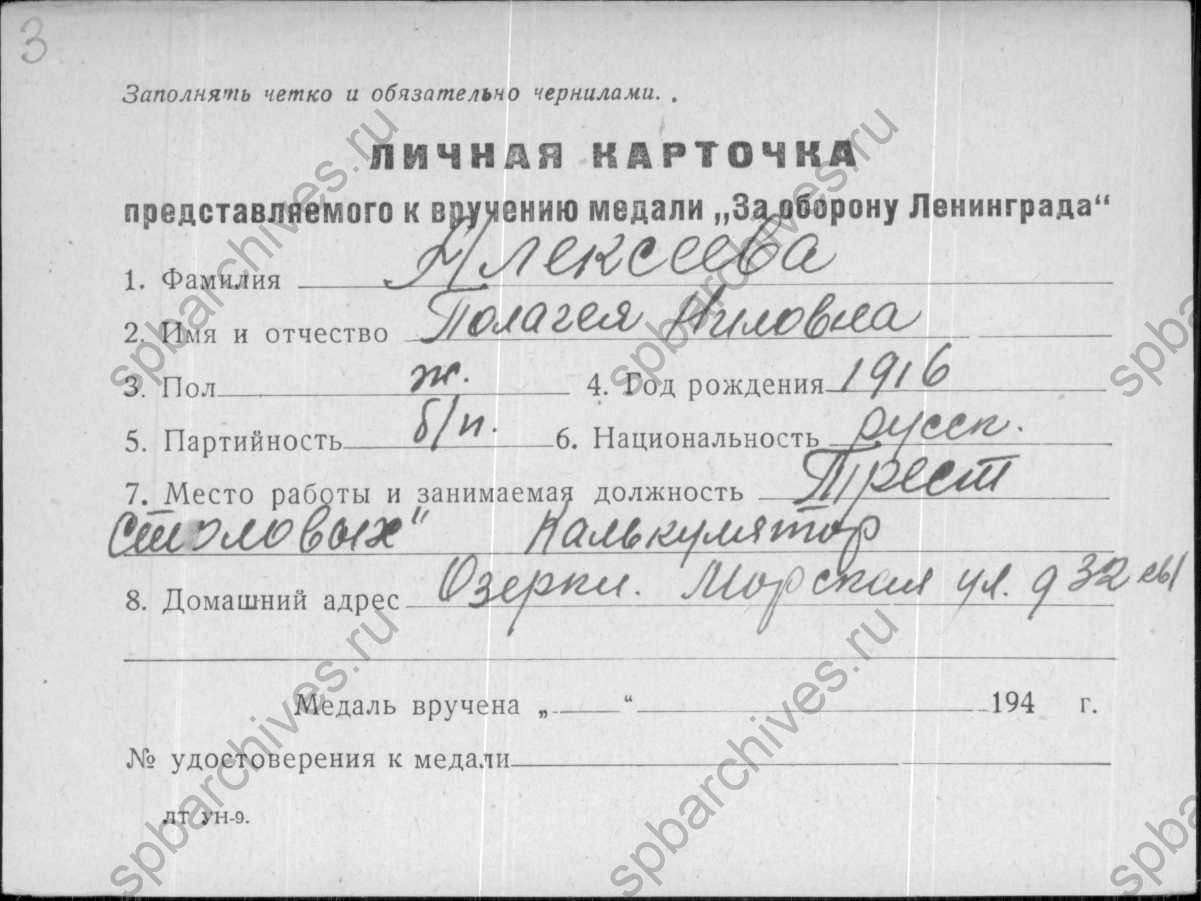 3
Заполнять четко и обязательно чернилами.
ЛИЧНАЯ КАРТОЧКА
представляемого к вручению медали „За оборону Ленинграда“
1. Фамилия Алексеева
2. Имя и отчество Полагея Ниловна
3. Пол ж. 4. Год рождения 1916
5. Партийность б/п. 6. Национальность русск.
7. Место работы и занимаемая должность Трест
Столовых" Калькулятор
8. Домашний адрес Озерки. Морская ул. д 32
Медаль вручена „ “ 194 г.
№ удостоверения к медали
ЛТ УН-9.
spbarchives.ru
spbarchives.ru
spbarchives.ru
spbarchives.ru